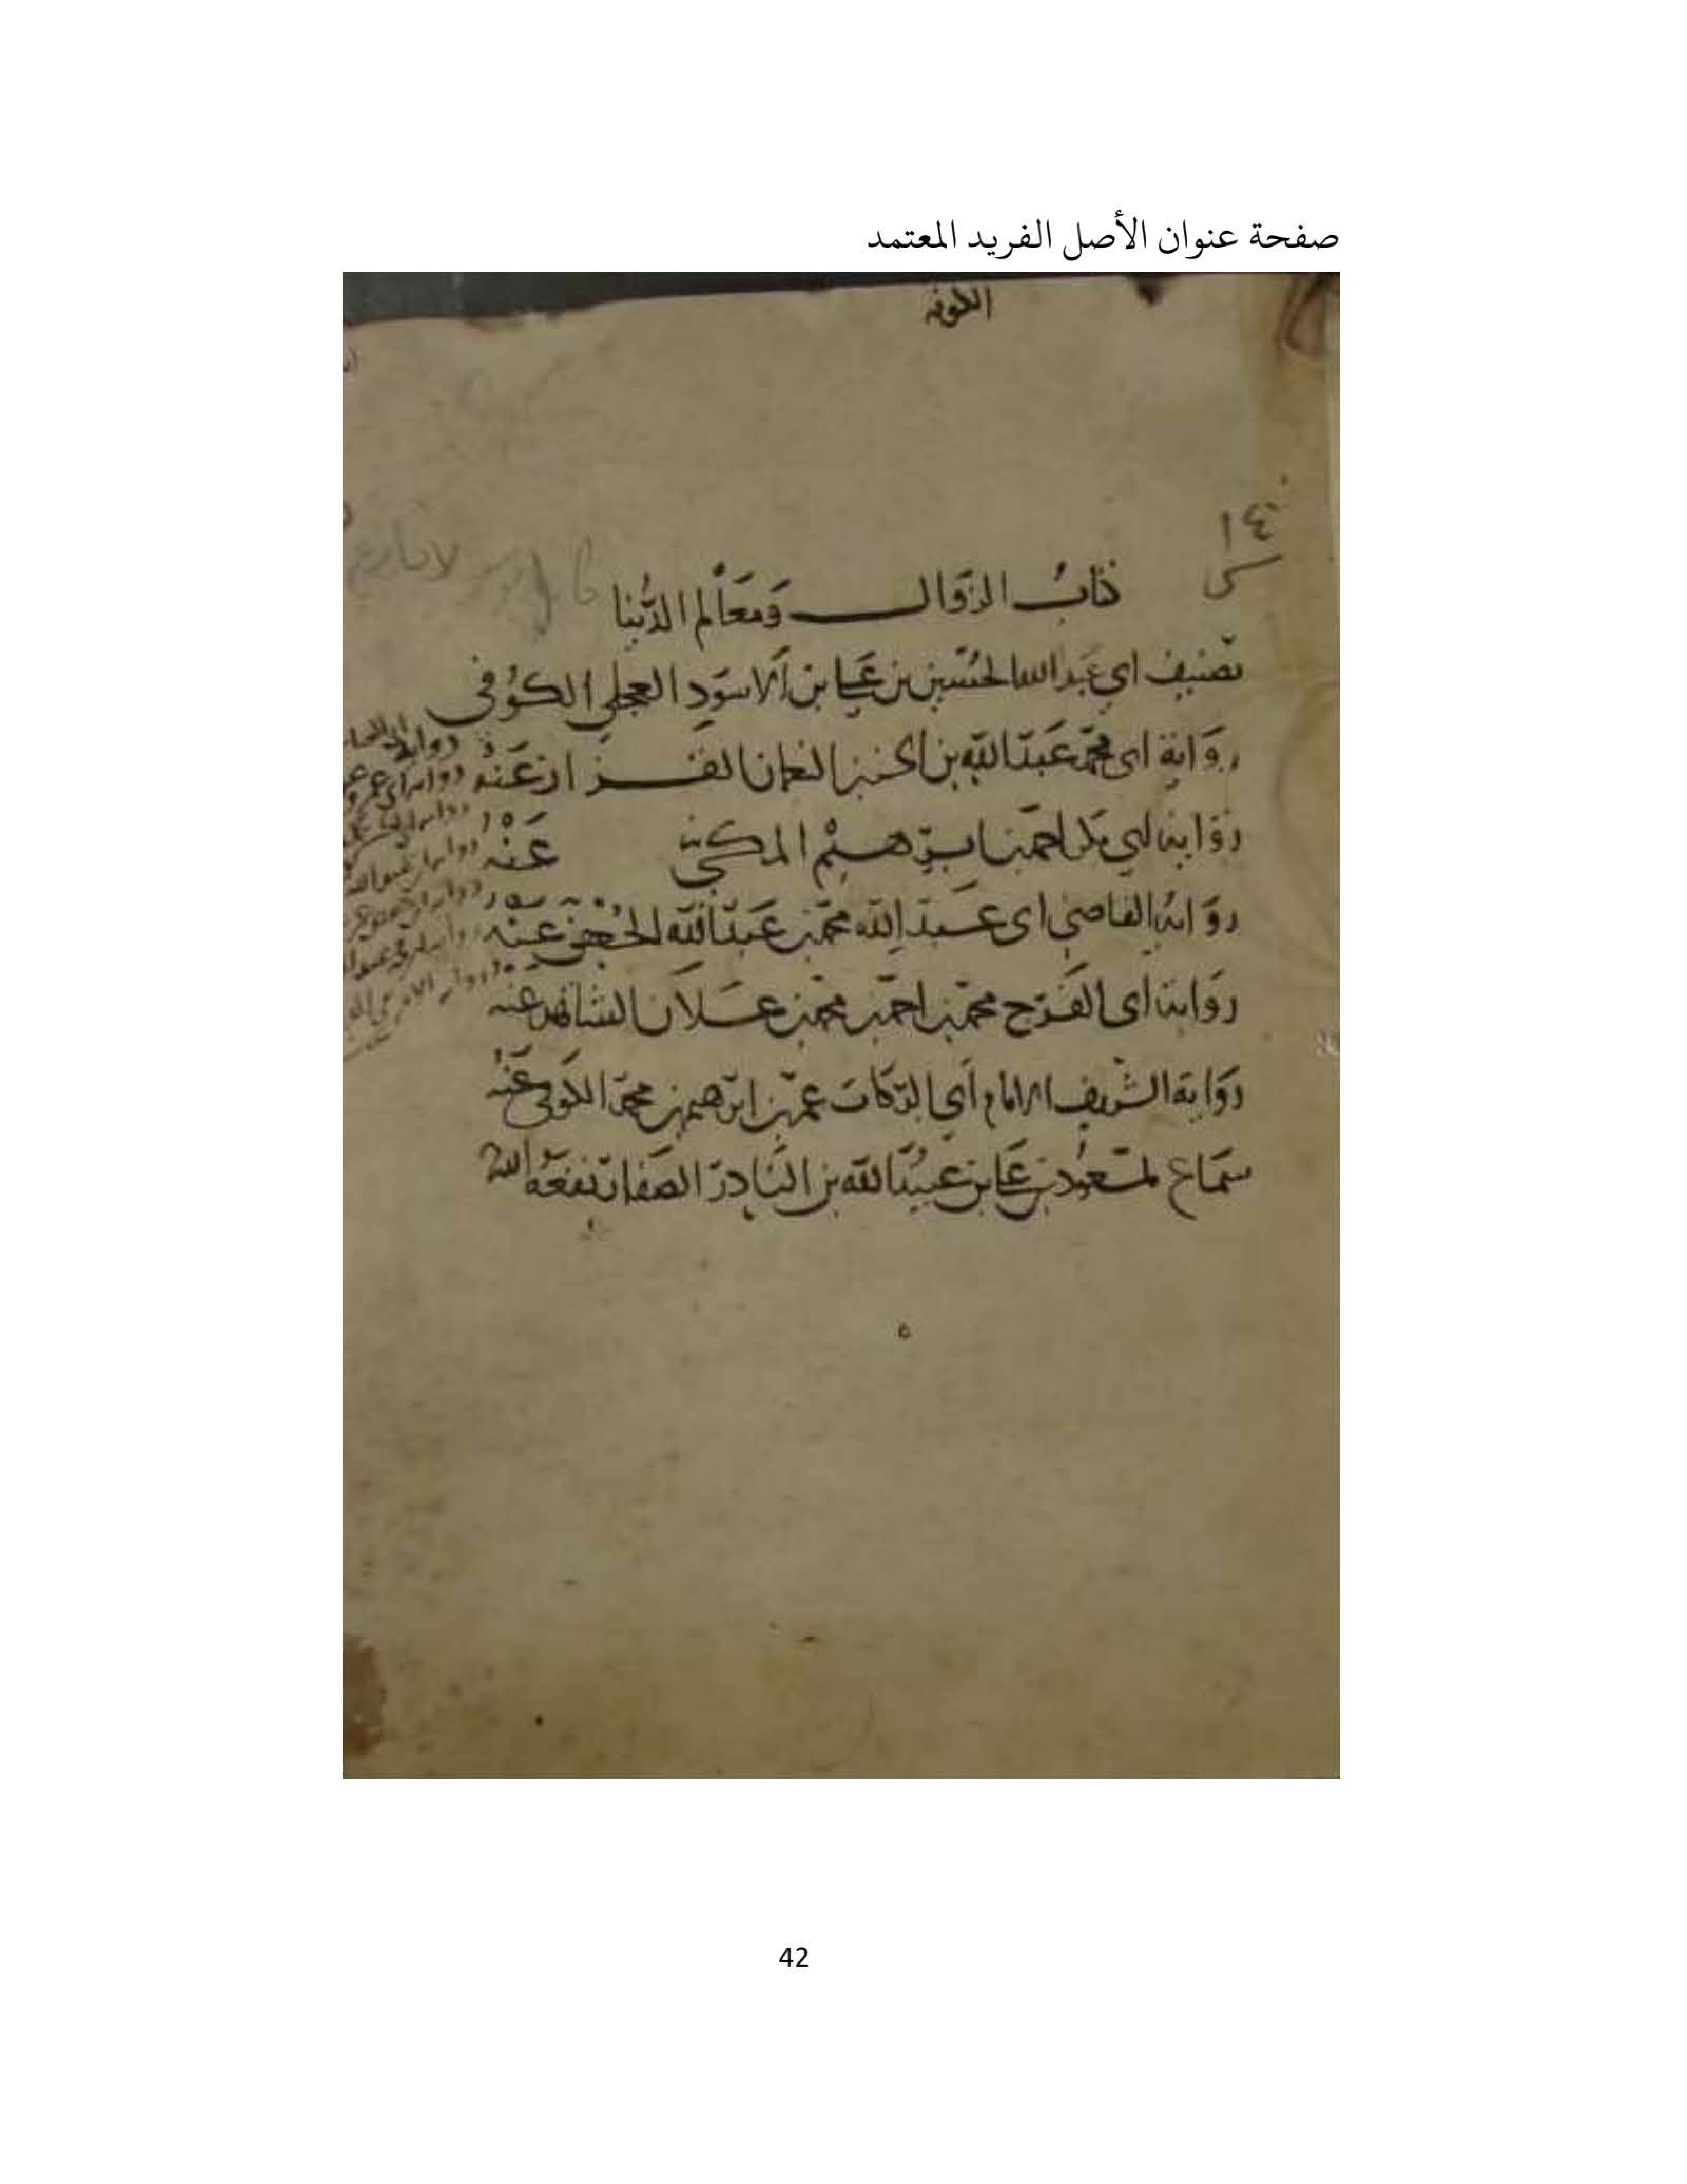 صفحة عنوان الأصل الفريد المعتمد
الكوفه
١٤
كتابُ الزَّوال وَمَعَالم الدُّنيا
تصنيف ابي عَبد الله الحسَين بن عَلي بن الاسوَدِ العجلي الكوُفي
روَاية ابي محمّد عَبد الله بن الحسَن النعمان القزاز عَنهُ
رواية ابي بكر احمد بن ابرهيم المكتب عَنْهُ
روَاية القاضي ابي عبد الله محمّد بن عَبد الله الجُعفي عَنْهُ
رواية ابي الفَرَج محمّد بن احمَد بن محمّد بن عَلان الشاهد عنه
روَاية الشَّريف الامام ابي البَركَات عمَر بن ابرَهيم بن محمّد الكوفي عَنْهُ
سمَاع لمسعُود بن عَلي بن عُبَيد الله بن النادر الصَفار نفعَهُ الله
42